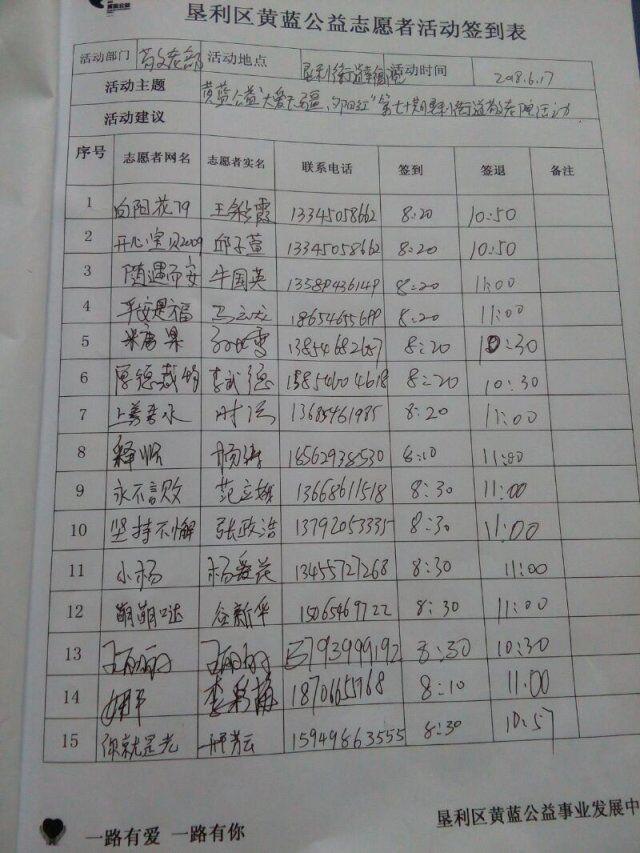 垦利区黄蓝公益志愿者活动签到表
活动部门 活动地点 垦利街道 活动时间 2018.6.17
活动主题 黄蓝公益"大爱无疆、夕阳红"第七十期垦利街道敬老院活动
活动建议
序号 志愿者网名 志愿者实名 联系电话 签到 签退 备注
1 向阳花79 13345058662 8:20 10:50
2 开心宝贝2009 邱子萱 13345058662 8:20 10:50
3 随遇而安 牛国英 13589436149 8:20 11:00
4 平安是福 18654655699 8:20 11:00
5 8:20 10:30
6 厚德载物 李武德 8:20 10:30
7 上善若水 8:20 11:00
8 释怀 18562938530 8:10 11:00
9 永不言败 13668611518 8:30 11:00
10 坚持不懈 张政浩 13792053335 8:30 11:00
11 小杨 杨爱花 13455727268 8:30 11:00
12 萌萌哒 谷新华 15065469722 8:30 11:00
13 8:30 10:30
14 8:10 11:00
15 你就是光 15949863555 8:30 10:57
一路有爱 一路有你
垦利区黄蓝公益事业发展中